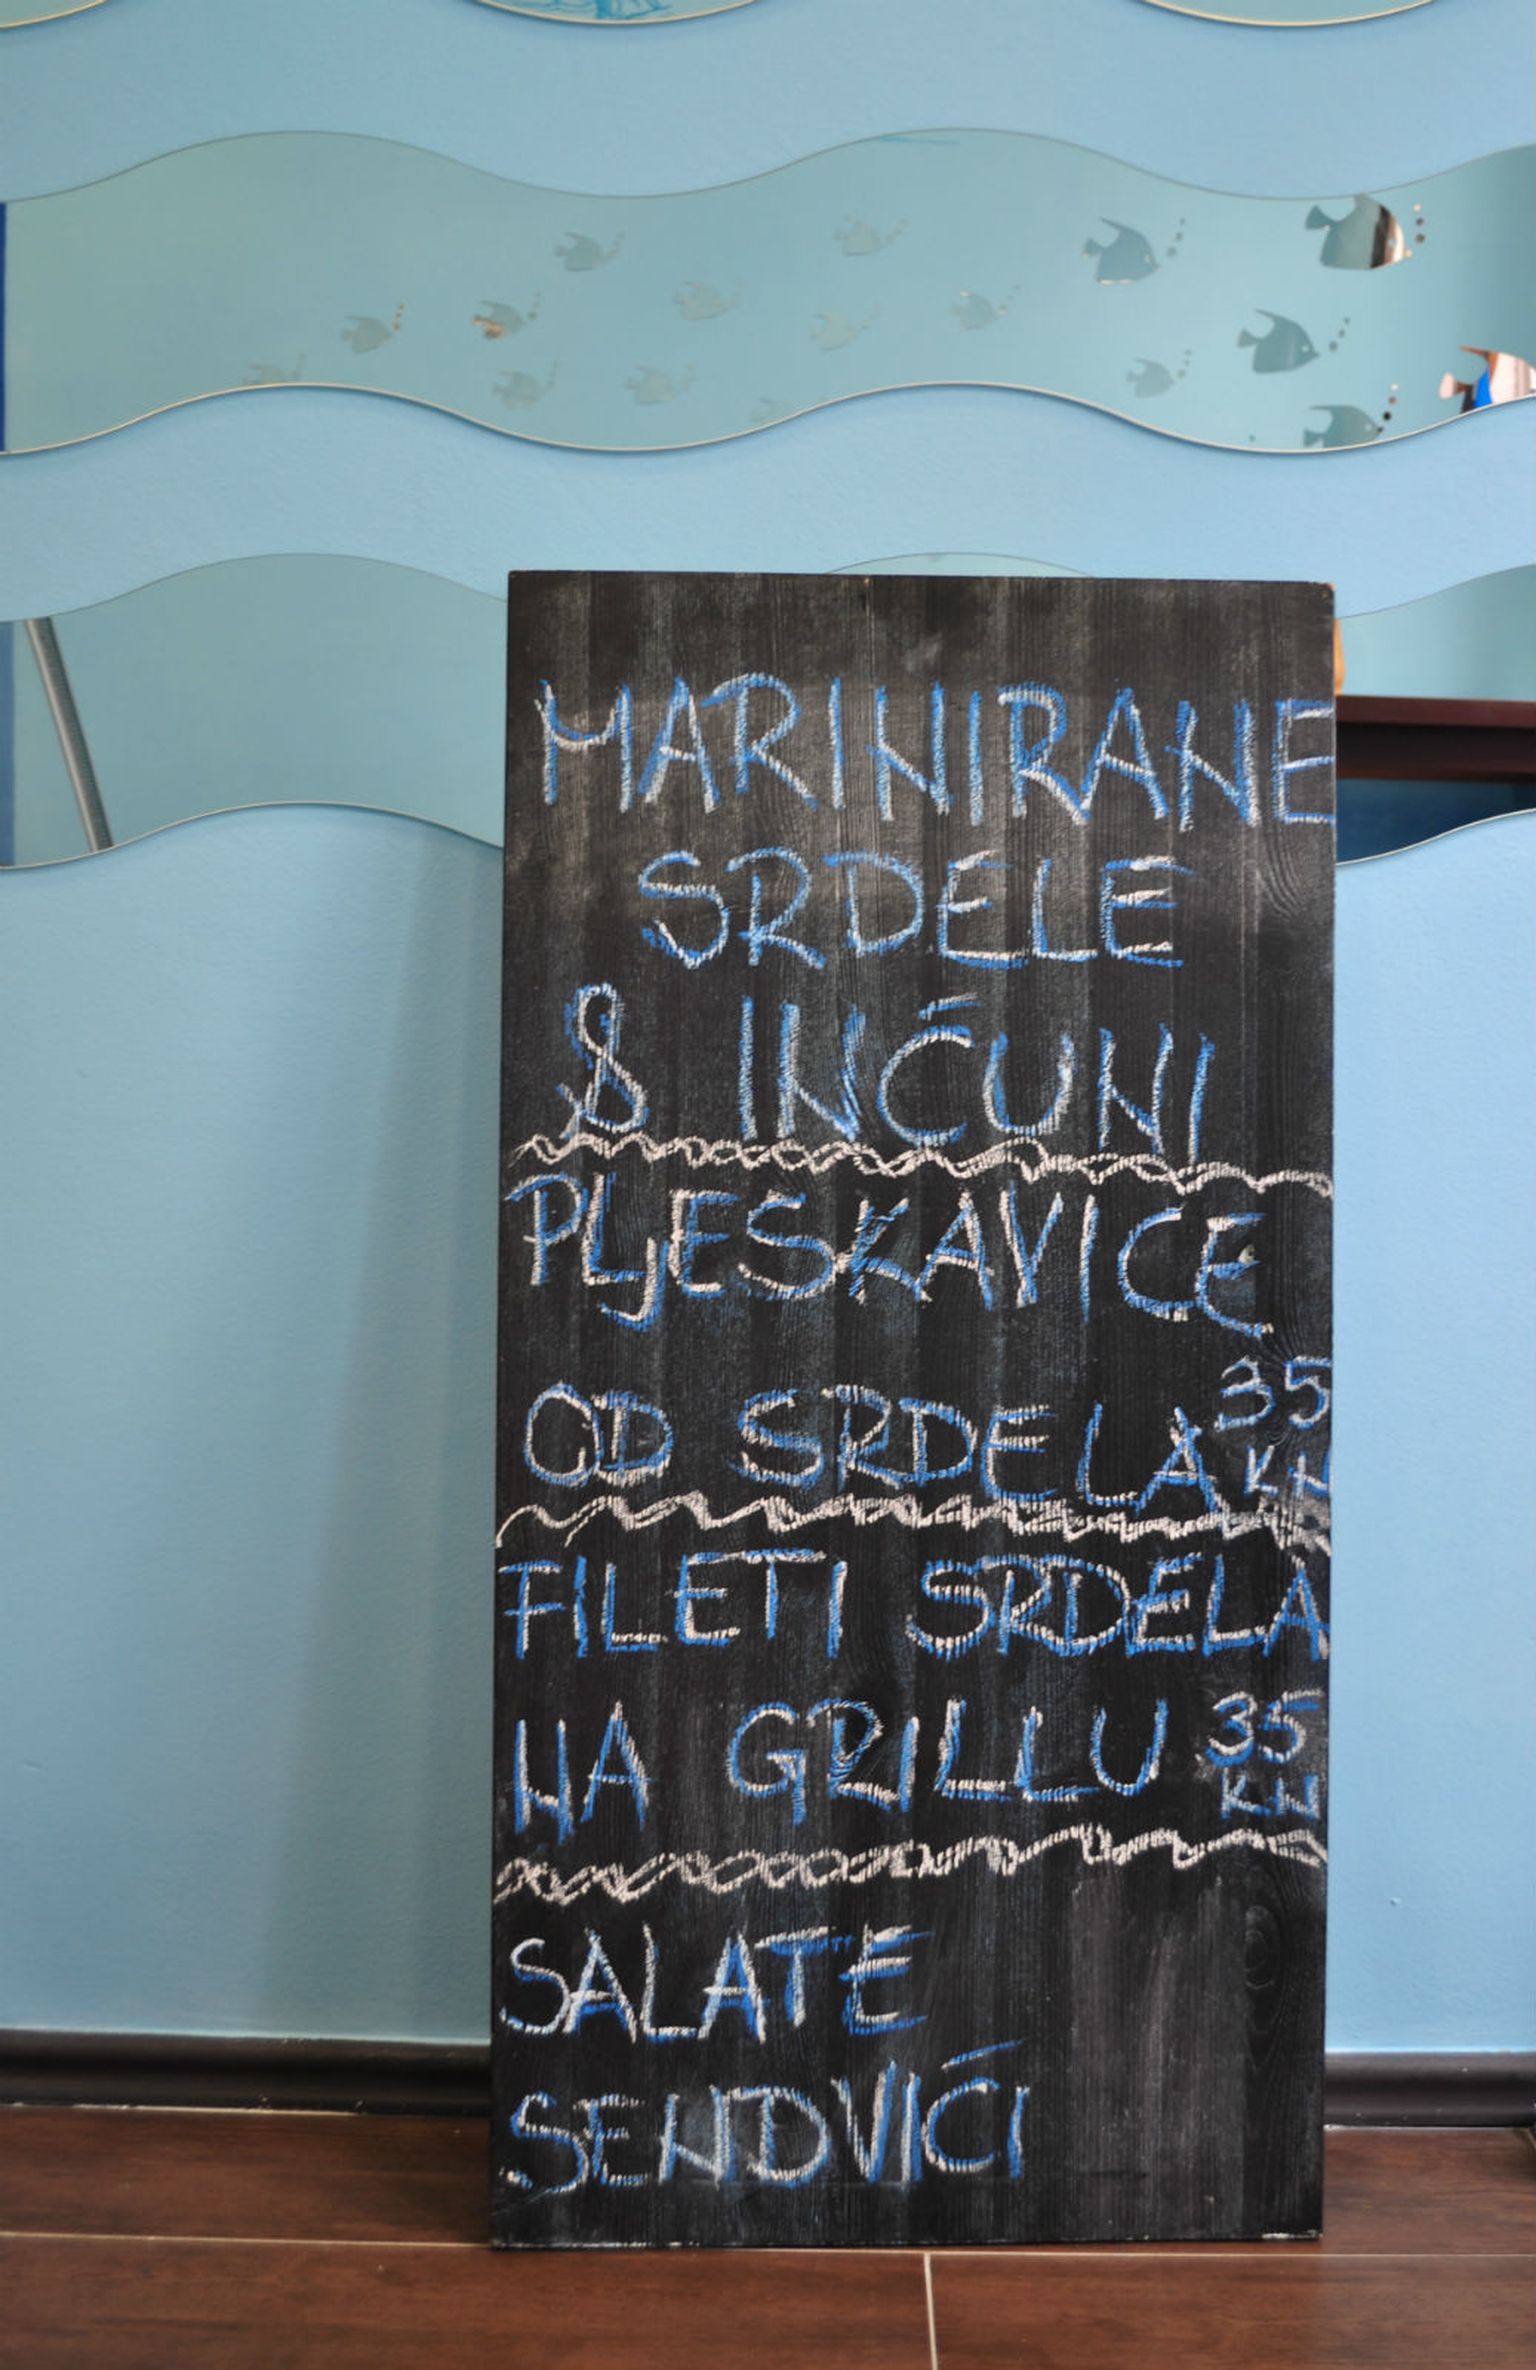 MARINIRANE
SRDELE
& INĆUNI
PLJESKAVICE
OD SRDELA 35 KN
FILETI SRDELA
NA GRILLU 35 KN
SALATE
SENDVIĆI